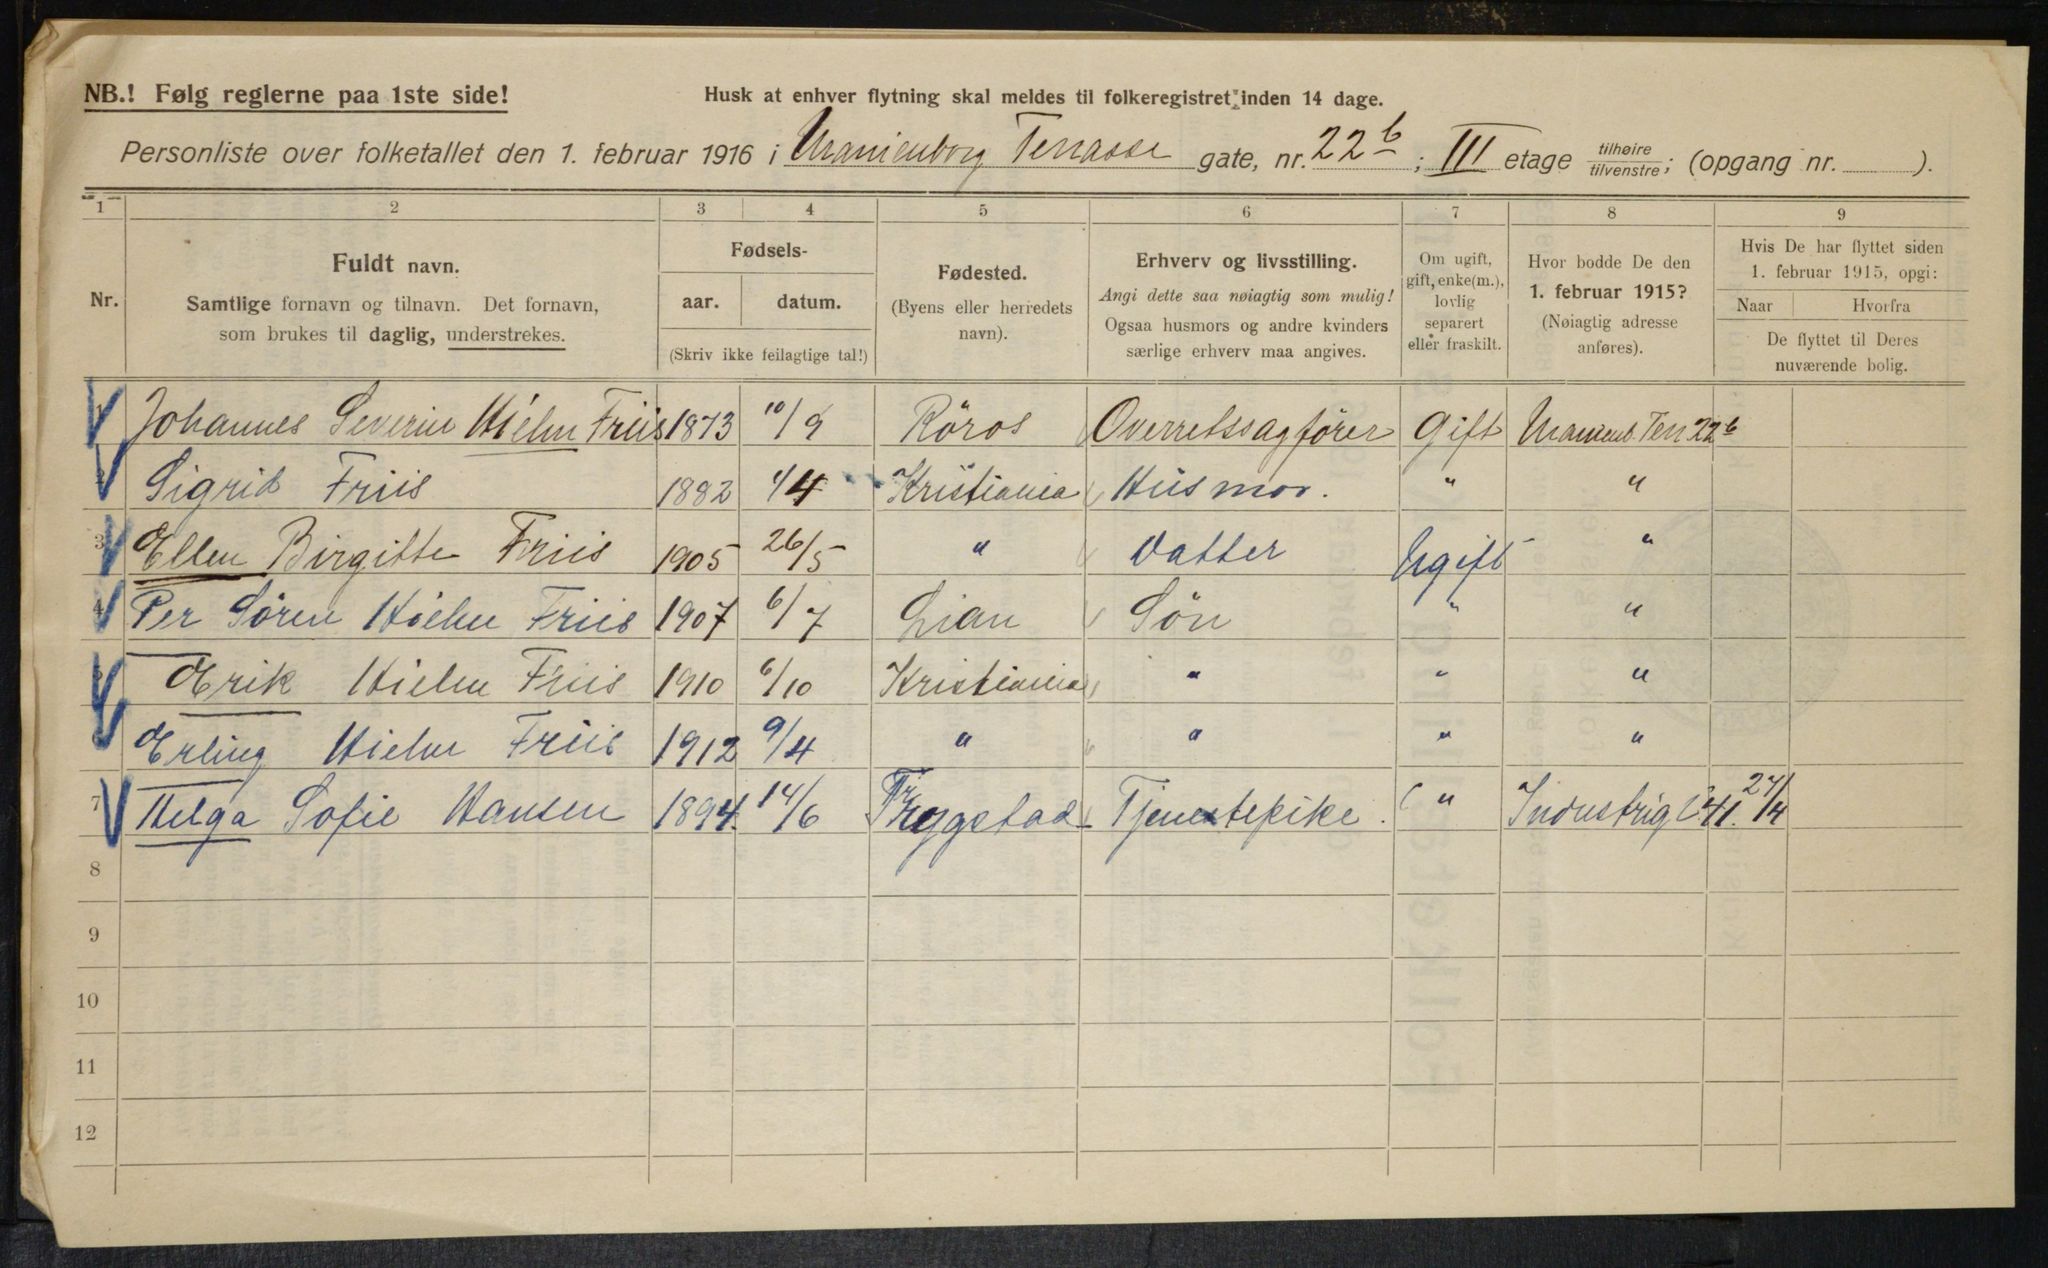 NB.! Følg reglerne paa 1ste side!
Husk at enhver flytning skal meldes til folkeregistret inden 14 dage.
Personliste over folketallet den 1. februar 1916 i Uranienborg Terrasse gate, nr. 22b; III etage tilhøire/tilvenstre; (opgang nr. ).
1 2 3 4 5 6 7 8 9
Nr.
Fuldt navn.
Samtlige fornavn og tilnavn. Det fornavn,
som brukes til daglig, understrekes.
Fødsels-
aar. datum.
(Skriv ikke feilagtige tal!)
Fødested.
(Byens eller herredets
navn).
Erhverv og livsstilling.
Angi dette saa nøiagtig som mulig!
Ogsaa husmors og andre kvinders
særlige erhverv maa angives.
Om ugift,
gift, enke(m.),
lovlig
separert
eller fraskilt.
Hvor bodde De den
1. februar 1915?
(Nøiagtig adresse
anføres).
Hvis De har flyttet siden
1. februar 1915, opgi:
Naar Hvorfra
De flyttet til Deres
nuværende bolig.
Johannes Severin Hielm Friis 1873 10/9 Röros Overretssagförer Gift Uranienb. Terr 22b
Sigrid Friis 1882 1/4 Kristiania Husmor. " "
3 Ellen Birgitte Friis 1905 26/5 " Datter Ugift "
4 Per Sören Hielm Friis 1907 6/7 Lian Sön " "
Erik Hielm Friis 1910 6/10 Kristiania " " "
Erling Hielm Friis 1912 9/4 " " " "
7 Helga Sofie Hansen 1894. 14/6 Tryggstad Tjenestepike. " Industrig 41. 27/4
8
9
10
11
12